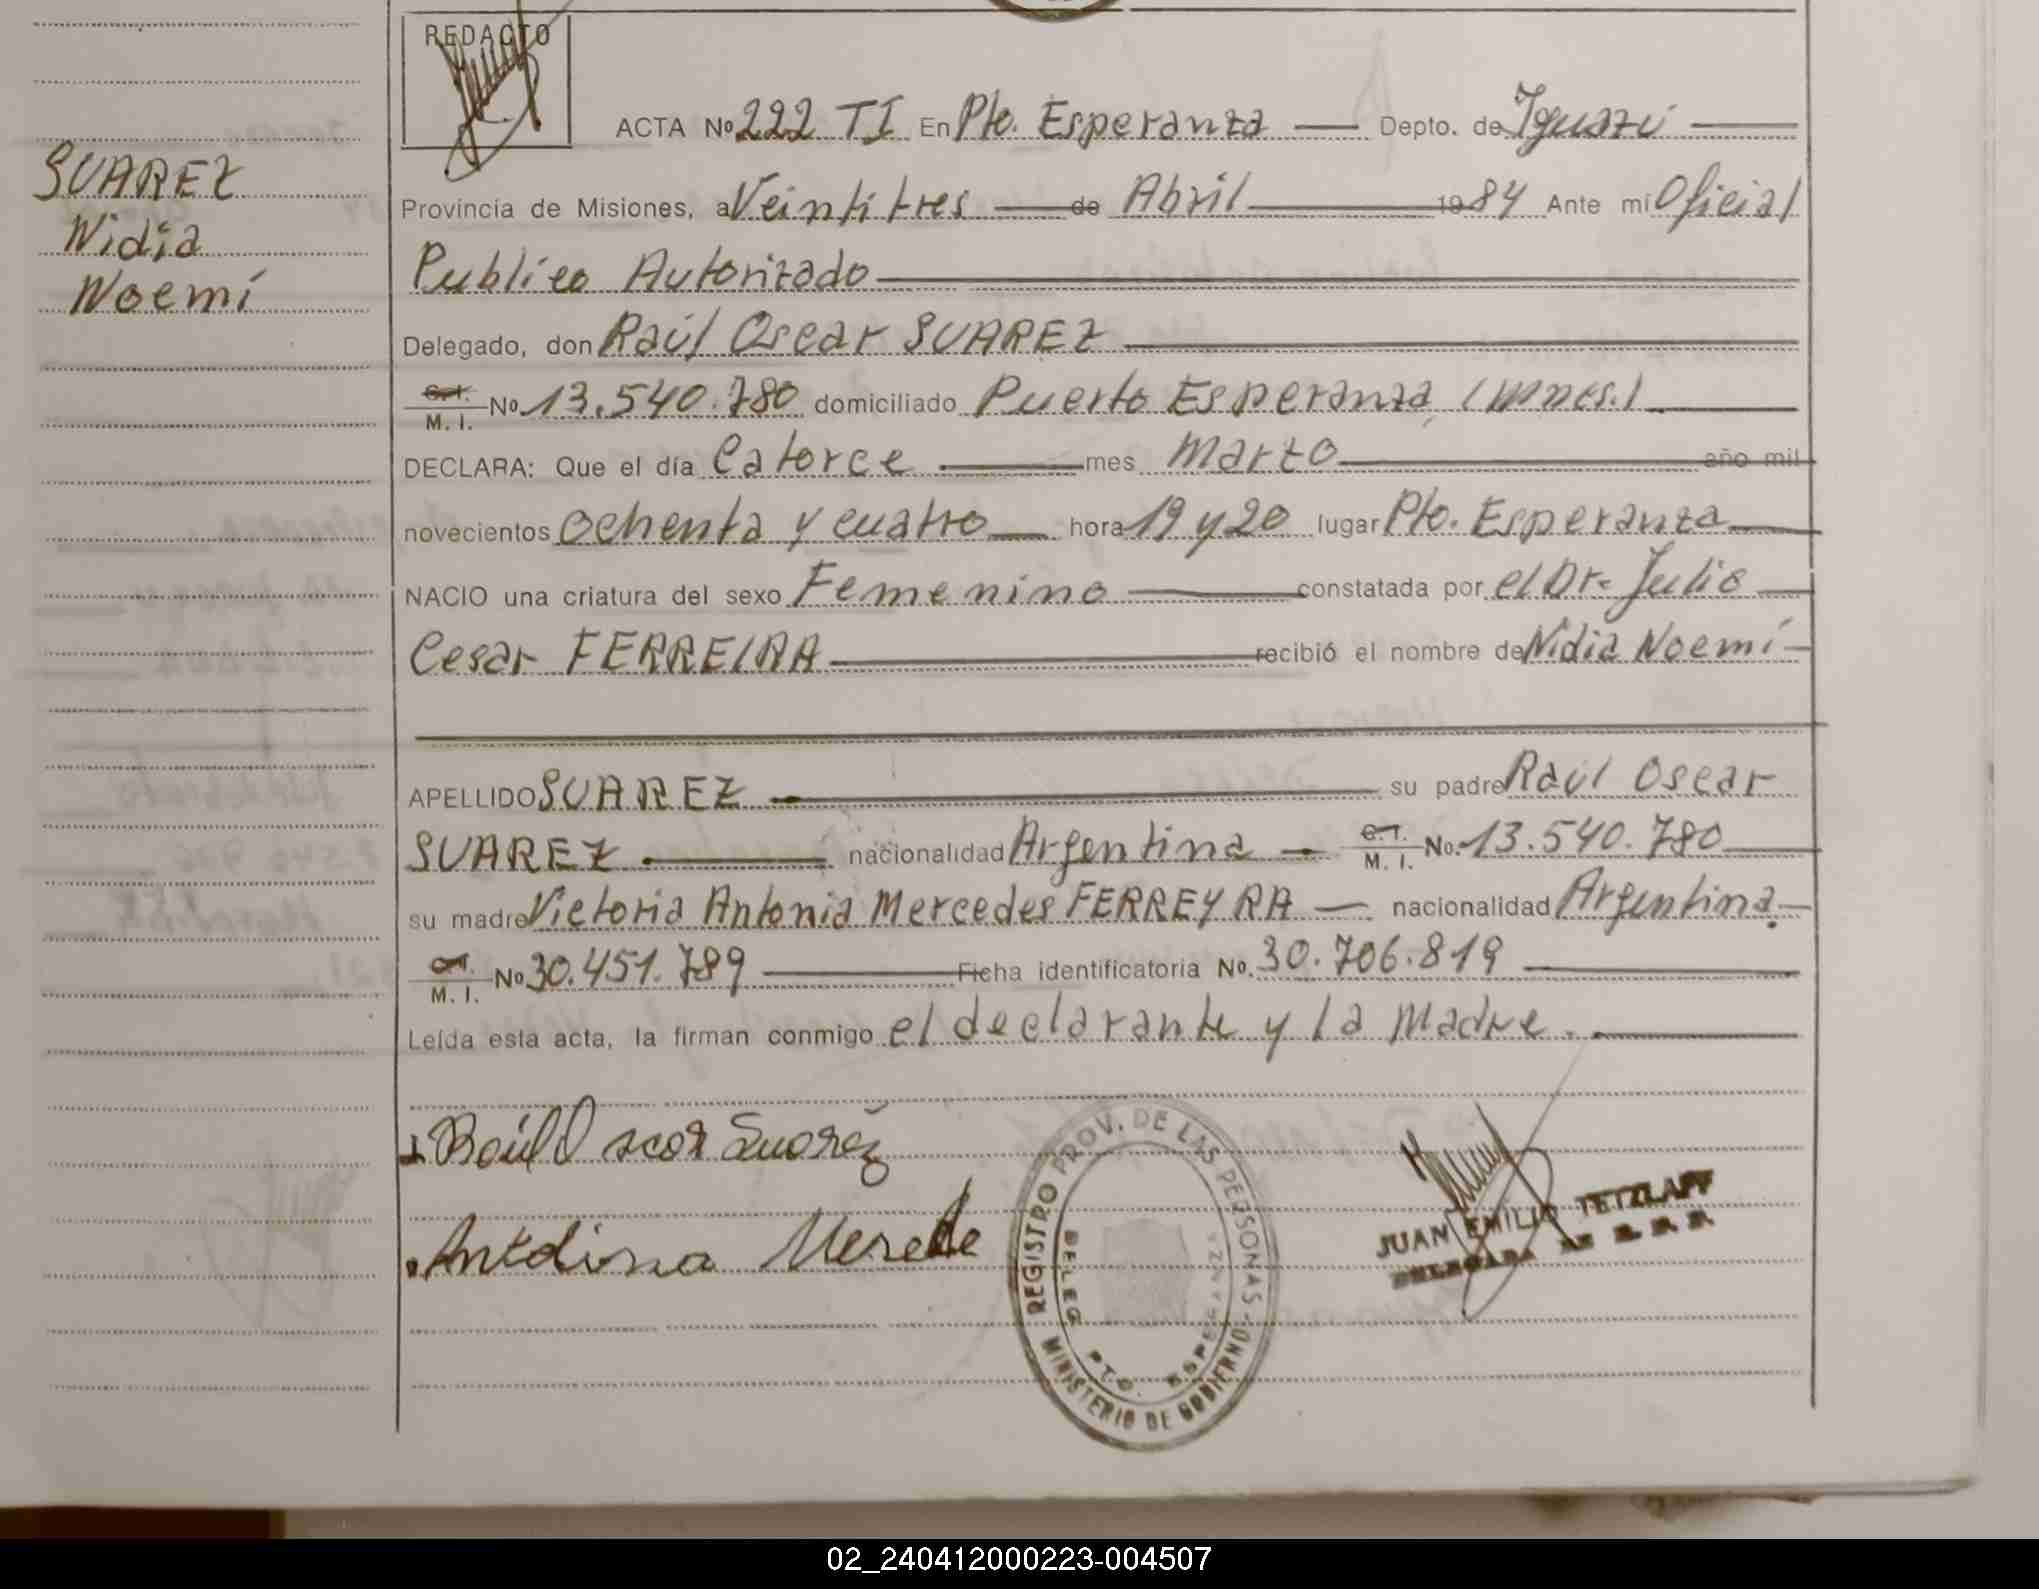 REDACTO
ACTA No 222 TI En Pto. Esperanza Depto. de Iguazú
SUAREZ
Nidia
Noemí
Provincia de Misiones, a Veintitres de Abril 1984 Ante mí Oficial
Publico Autorizado
Delegado, don Raúl Oscar SUAREZ
C.I. M. I. No 13.540.780 domiciliado Puerto Esperanza (Mnes.)
DECLARA: Que el día Catorce mes Marzo año mil
novecientos ochenta y cuatro hora 19 y 20 lugar Pto. Esperanza
NACIO una criatura del sexo Femenino constatada por el Dr. Julio
Cesar FERREIRA recibió el nombre de Nidia Noemí
APELLIDO SUAREZ su padre Raúl Oscar
SUAREZ nacionalidad Argentina C.I. M. I. No. 13.540.780
su madre Victoria Antonia Mercedes FERREYRA nacionalidad Argentina.
C.I. M. I. No 30.451.789 Ficha identificatoria No. 30.706.819
Leída esta acta, la firman conmigo el declarante y la Madre.
Raúl Oscar Suarez
REGISTRO PROV. DE LAS PERSONAS - MINISTERIO DE GOBIERNO
DELEG. PTO. ESPERANZA
JUAN EMILIO TETZLAFF
02_240412000223-004507